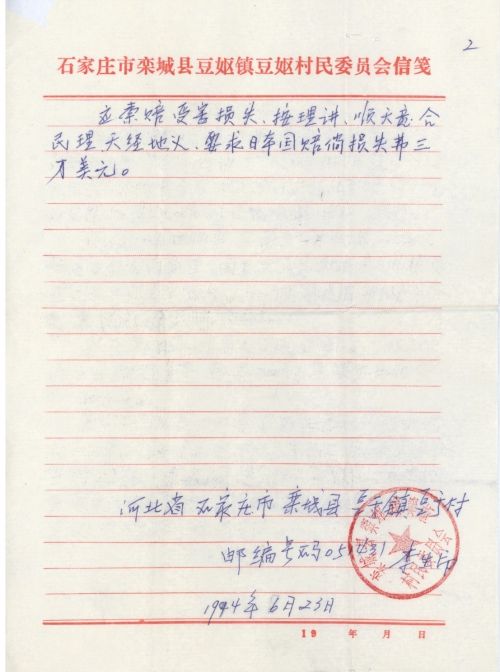 2
石家庄市栾城县豆妪镇豆妪村民委员会信笺
应索赔受害损失、按理讲、顺天意合
民理天经地义、要求日本国赔偿损失弗三
万美元。
河北省石家庄市栾城县豆于镇豆于村
邮编号码051431 李
1994年6月23日
19 年 月 日